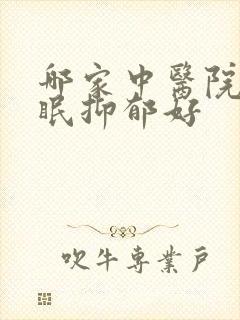 那家中醫院
眠抑郁好
吹牛專業戶